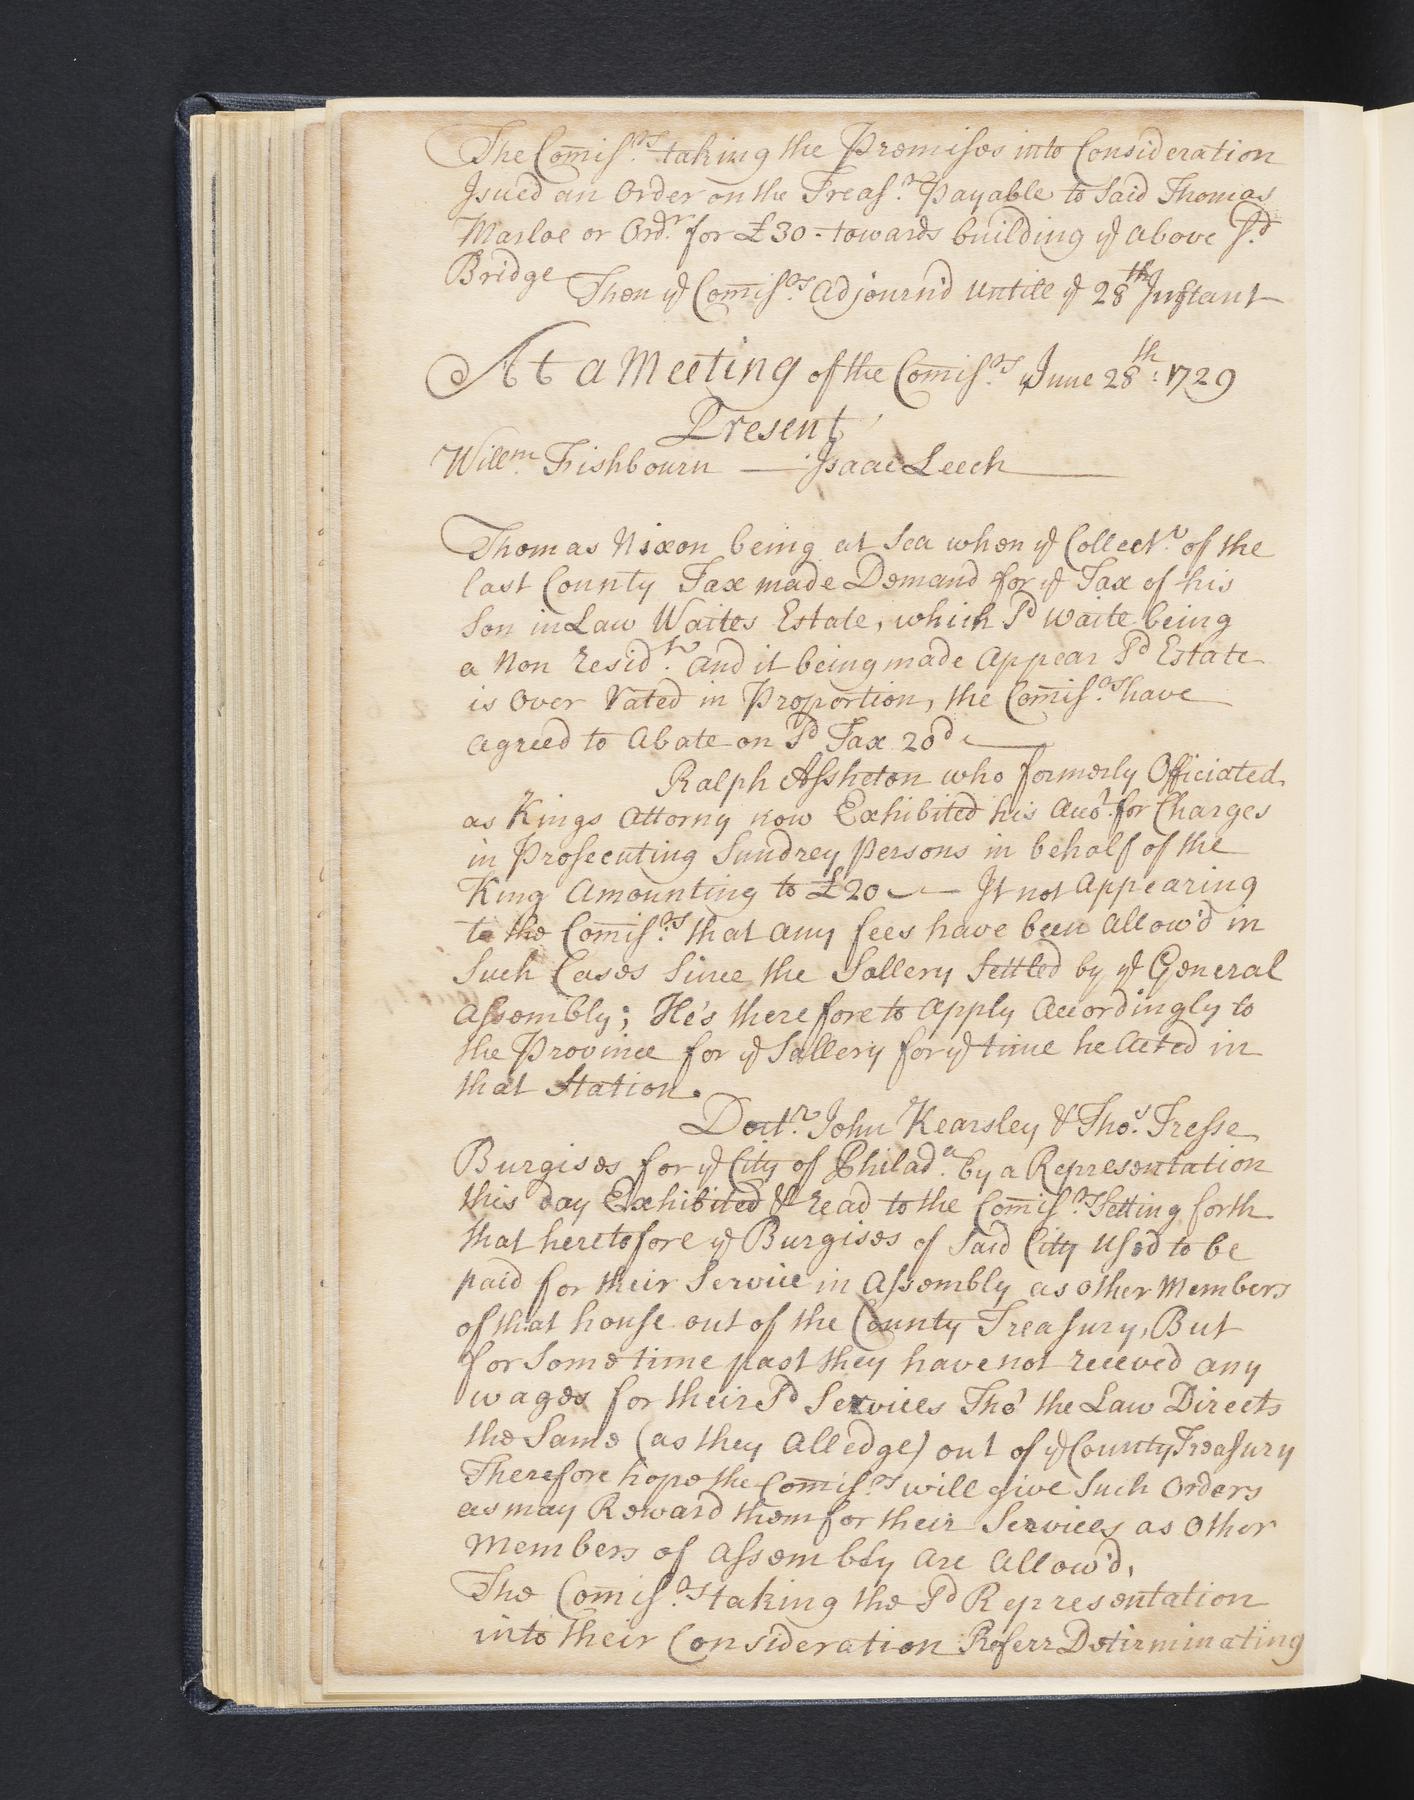 The Comiss.rs taking the Premises into Consideration
Issued an Order on the Treas.r Payable to Said Thomas
Marloe or Ord.r for £30 - towards building ye above sd
Bridge Then ye Comiss.rs Adjourn'd Untill ye 28th Instant
At a Meeting of the Comiss.rs June 28th: 1729
Present
Willm. Fishbourn — Isaac Leech
Thomas Nixon being at Sea when ye Collect.r of the
last County Tax made Demand for ye Tax of his
Son in Law Waites Estate, which sd Waite being
a Non Resid.r and it being made Appear sd Estate
is Over Rated in Proportion, the Comiss.rs have
Agreed to Abate on sd Tax 20d
Ralph Assheton who formerly Officiated
as Kings Attorny now Exhibited his Acco.t for Charges
in Prosecuting Sundrey Persons in behalf of the
King Amounting to £20 — It not Appearing
to the Comiss.rs that any fees have been Allow'd in
Such Cases Since the Sallery Settled by ye General
Assembly; He's therefore to Apply Accordingly to
the Province for ye Sallery for ye time he Acted in
that Station.
Doct.r John Kearsley & Tho.s Tresse
Burgises for ye City of Philad.a by a Representation
this day Exhibited & read to the Comiss.rs Setting forth
that heretofore ye Burgises of Said City Used to be
paid for their Service in Assembly as other Members
of that house out of the County Treasury, But
for Some time past they have not receved any
wages for their sd Services Tho' the Law Directs
the Same (as they Alledge) out of ye County Treasury
Therefore hope the Comiss.rs will give Such Orders
as may Reward them for their Services as Other
Members of Assembly Are Allow'd,
The Comiss.rs taking the sd Representation
into their Consideration Referr Detirminating